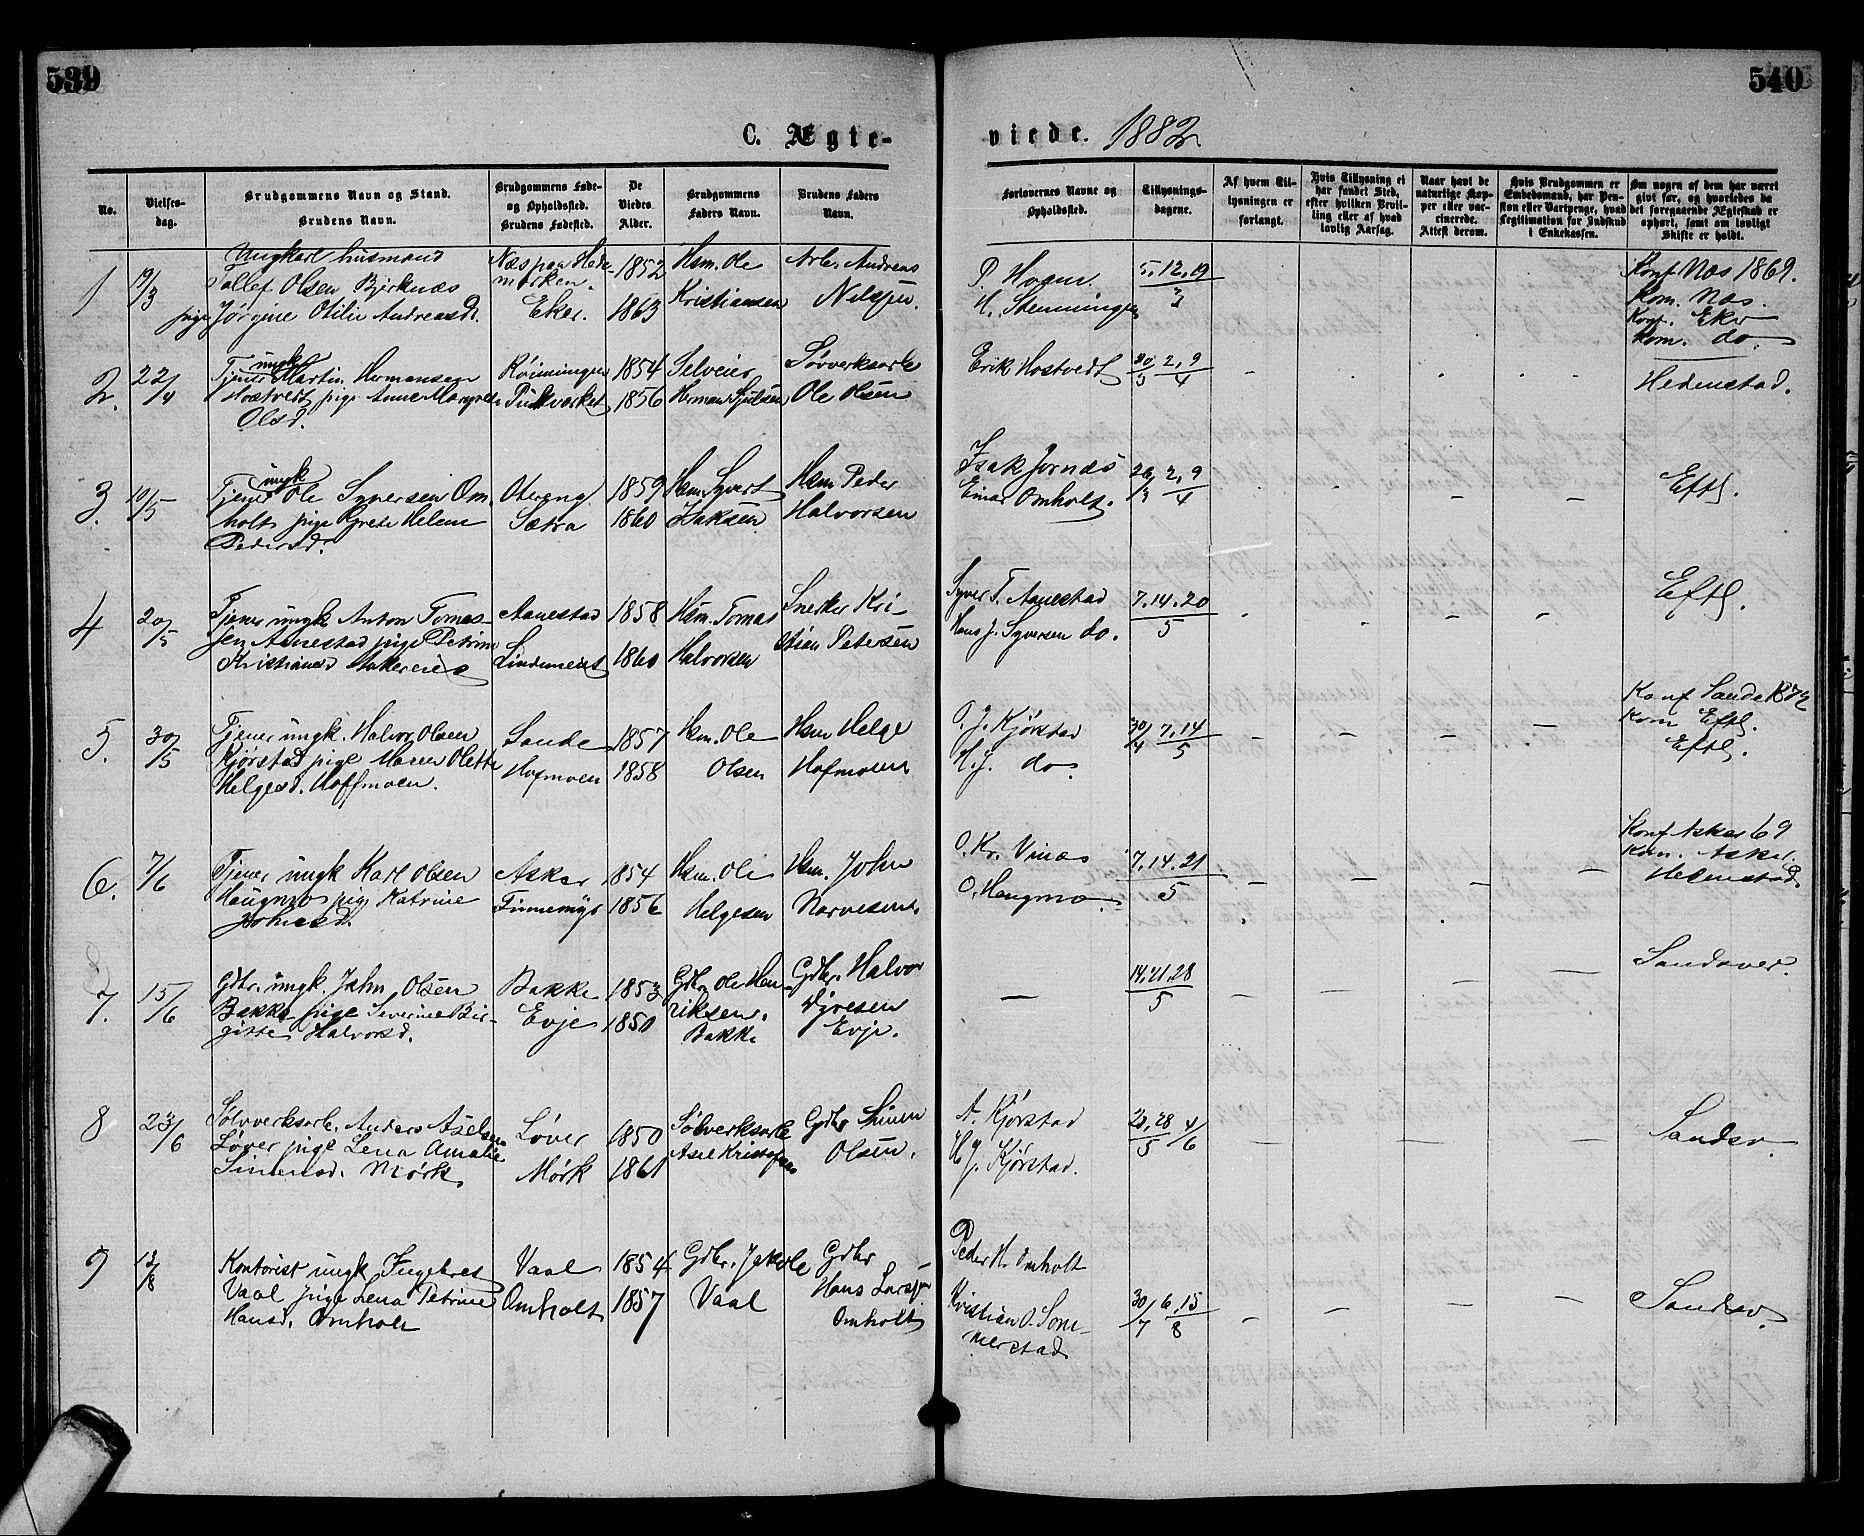 539
540
C. Ægte-
viede. 1882
No.
Vielses-
dag.
Brudgommens Navn og Stand.
Brudens Navn.
Brudgommens Føde-
og Opholdssted.
Brudens Fødested.
De
Viedes
Alder.
Brudgommens
Faders Navn.
Brudens Faders
Navn.
Forlovernes Navne og
Opholdssted.
Tillysnings-
dagene.
Af hvem Til-
lysningen er
forlangt.
Hvis Tillysning ei
har fundet Sted,
efter hvilken Bevil-
ling eller af hvad
lovlig Aarsag.
Naar havt de
naturlige Kop-
per eller vac-
cinerede.
Attest derom.
Hvis Brudgommen er
Embedsmand, har Pen-
sion eller Vartpenge, hvad
Legitimation for Indskud
i Enkekassen.
Om nogen af dem har været
gift før, og hvorledes da
det foregaaende Ægteskab er
ophørt, samt om lovligt
Skifte er holdt.
1 19/3
Ungkarl husmand
Tollef Olsen Bjerknæs
pige Jørgine Otilie Andreasd.
Næs paa Hede-
marken.
Eker.
1852
1863
Hsm. Ole
Kristiansen
Arb. Andreas
Nilsen.
P. Hogen.
H. Stenningen
5, 12, 19
3
Konf. Næs 1869.
Kom. Næs.
Konf. Eker
Kom. do.
2. 22/4
ungk
Tjener Martin Hermansen
Hostvedt pige Anne Margrete
Olsd.
Rønningen
Pukverket
1854
1856
Selveier
Herman Gulsen
Sølvverksarb
Ole Olsen
Erik Hostvedt
30/3 2, 9
4
Hedenstad.
3. 10/5
ungk
Tjener Ole Syversen Om-
holt pige Grete Helene
Pedersd.
Otereng
Sætra
1859
1860
Hsm Syvert
Isaksen
Hsm Peder
Halvorsen
Isak Jornæs
Einar Omholt.
26/3 2, 9
4
Eftl.
4 20/5
Tjener ungk Anton Tomas-
sen Aanestad pige Petrine
Kristiansd Ankereie
Aanestad
Lindemeiet
1858
1860
Hsm. Tomas
Halvorsen
Snerker Kri-
stian Petersen
Syver T. Aanestad
Hans J. Syversen do.
7. 14. 20
5
Eftl.
5. 30/5
Tjener ungk. Halvor Olsen
Kjørstad pige Maren Olette
Helgesd. Hoffmoen.
Sande
Hofmoen
1857
1858
Hsm. Ole
Olsen
Hsm Helge
Hofmoen
O. J. Kjørstad
H. J. do.
30/4 7, 14
5
Konf Sande 1872
Kom Eftl.
Eftl.
6. 7/6
Tjener ungk Karl Olsen
Haugmo pige Katrine
Johnsd.
Asker
Finnemyr
1854
1856
Hsm. Ole
Helgesen
Hsm. John
Narvesen.
O. Kr. Vinæs
O. Haugmo
7. 14. 21
5
Konf Asker 69
Kom. Asker.
Hedenstad.
7. 15/6
Gdbr. ungk. John Olsen
Bakke pige Severine Bir-
gitte Halvorsd.
Bakke
Evje
1853
1850
Gdbr. Ole Hen-
riksen.
Bakke
Gdbr. Halvor
Dyresen
Evje.
14. 21. 28
5
Sandsver.
8 23/6
Sølvverksarb. Anders Axelsen
Løver pige Lena Amalie
Simensd. Mørk
Løver
Mørk
1850
1861
Sølvverksarb
Axel Kristofersen
Gdbr Simen
Olsen.
A. Kjørstad
H. J. Kjørstad.
21, 28 4/6
5
Sandsv.
9 13/8
Kontorist ungk Ingebret
Vaal pige Lena Petrine
Hansd. Omholt
Vaal
Omholt
1854
1857
Gdbr. Jakob
Vaal
Gdbr
Hans Larsen
Omholt
Peder H. Omholt
Kristian O. Som-
merstad
30/7 6, 15
8
Sandsv.